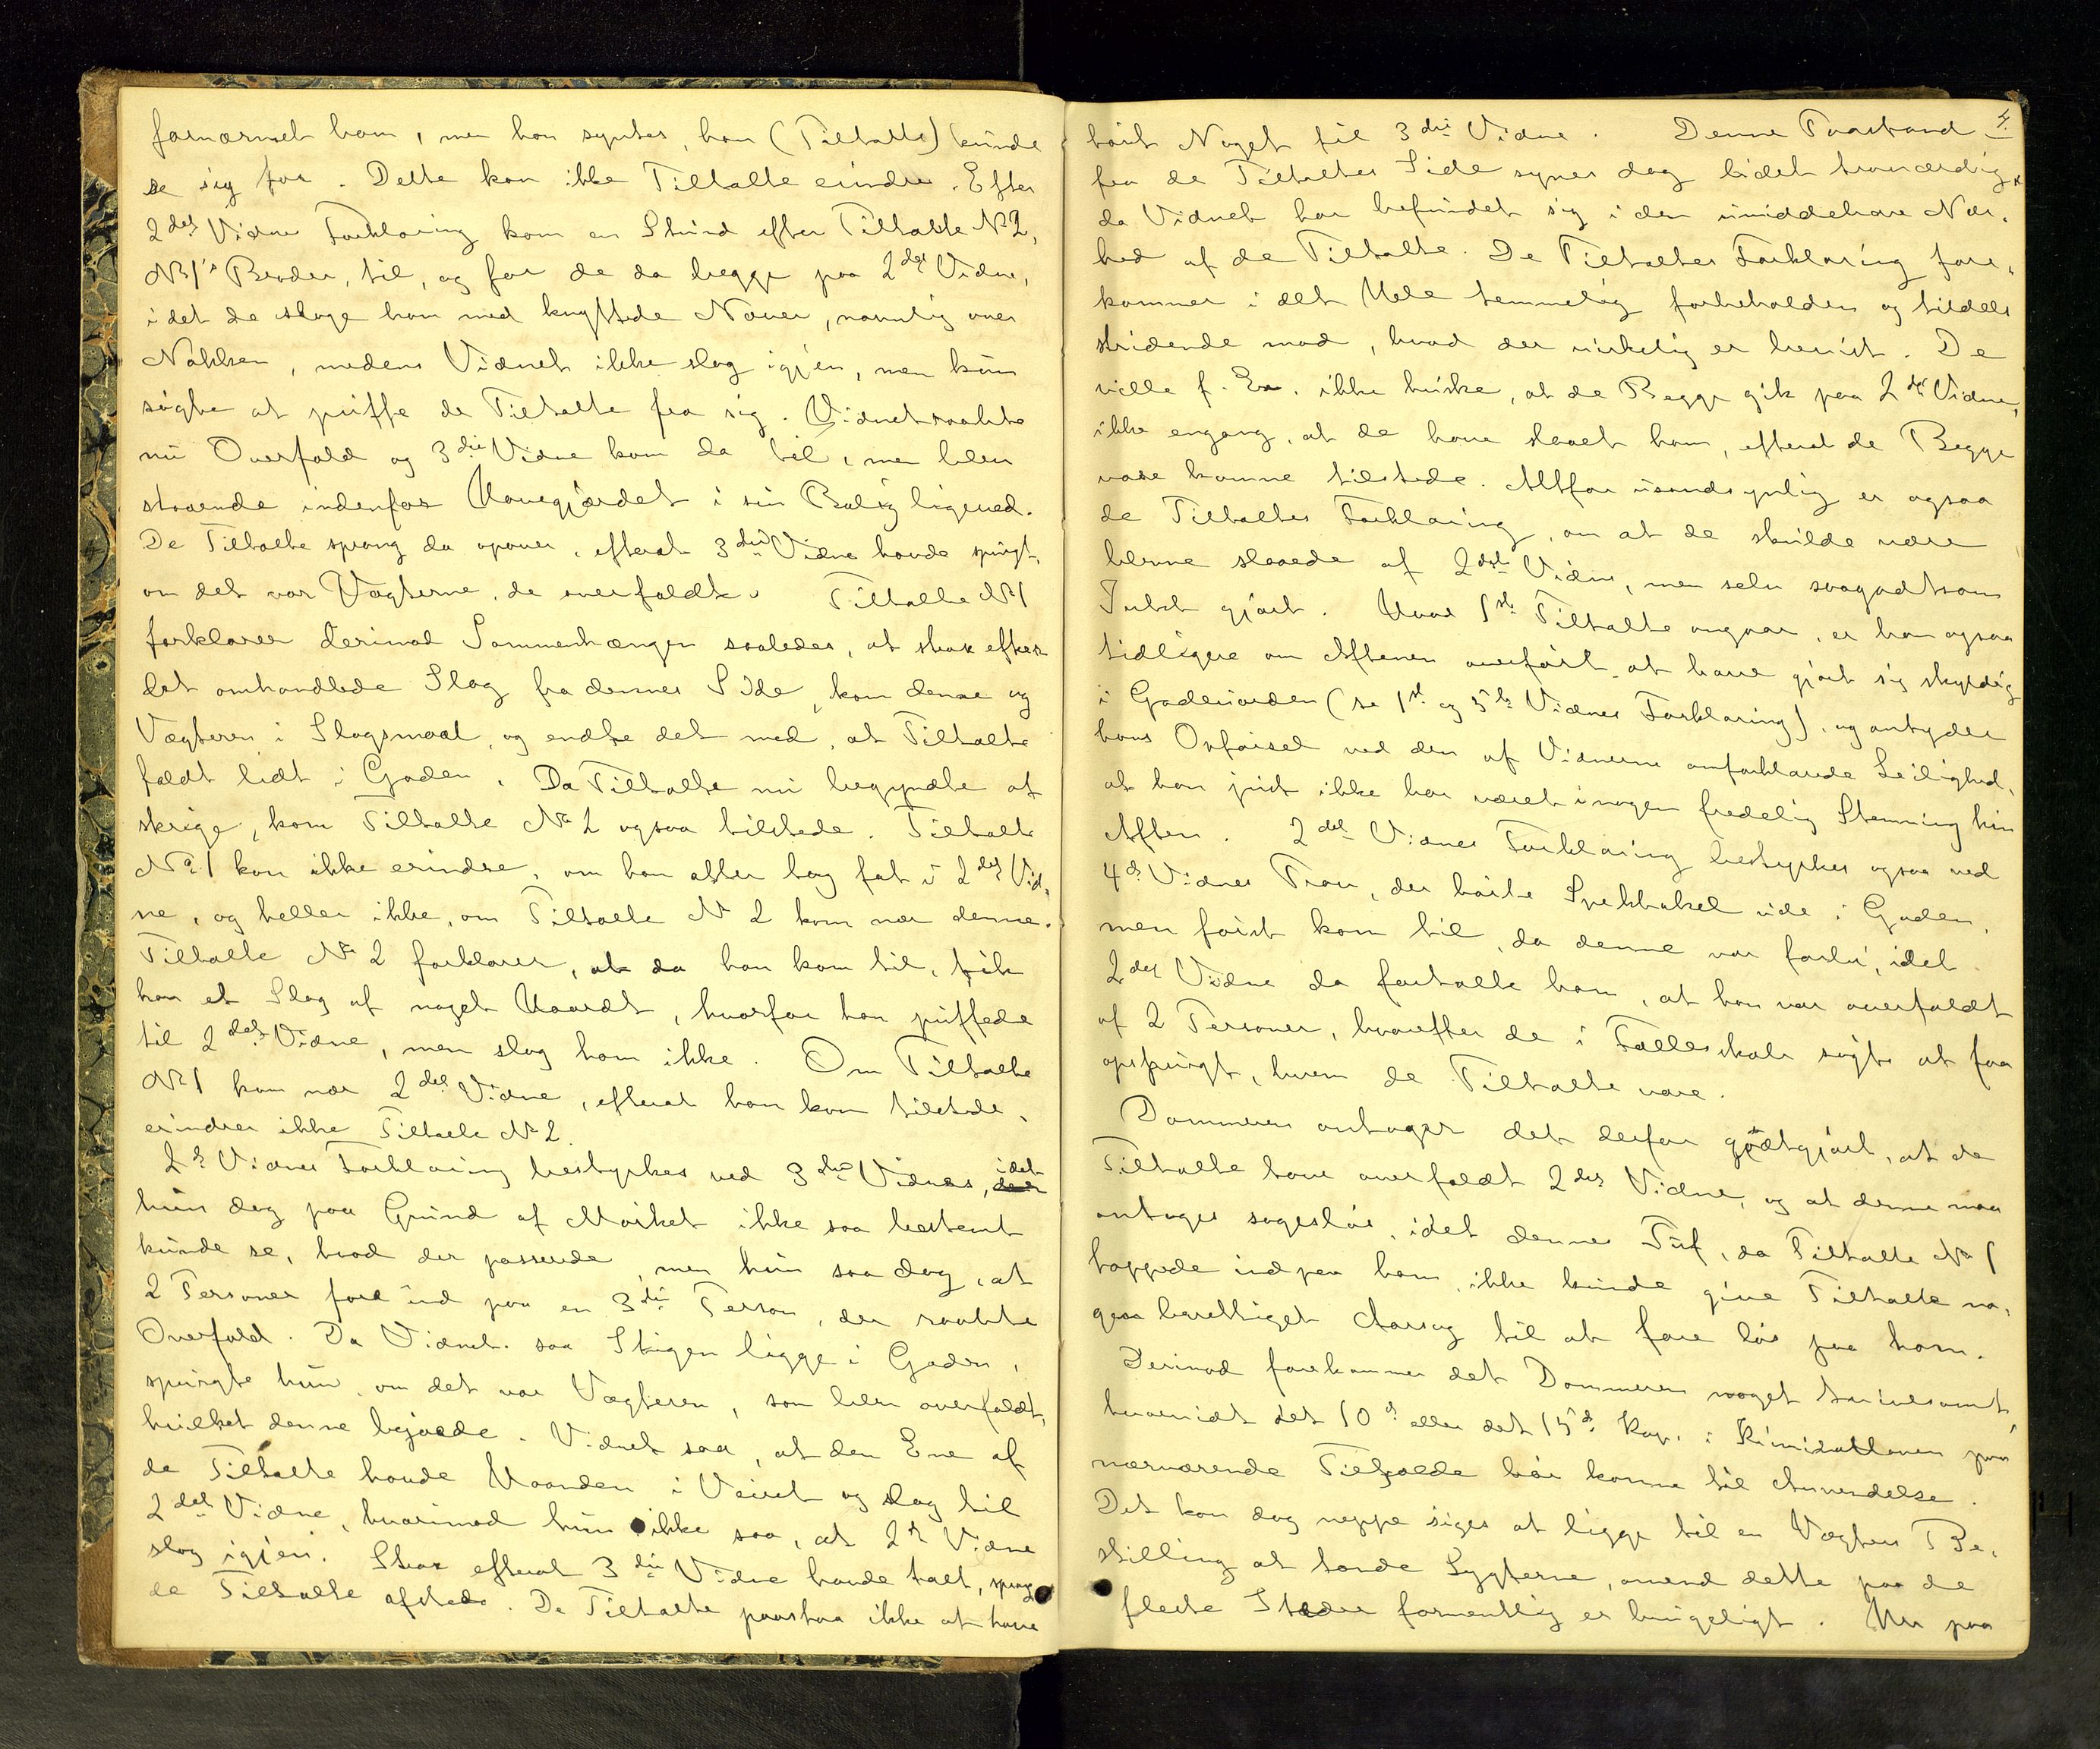 fornærmet ham, men han syntes, han (Tiltalte) kunde
se sig for. Dette kan ikke Tiltalte erindre. Efter
2det Vidnes Forklaring kom en Stund efter Tiltalte No 2,
No 1's Broder, til, og for de da begge paa 2det Vidne,
idet de sloge ham med knyttede Næver, navnlig over
Nakken, medens Vidnet ikke slog igjen, men kun
søgte at puffe de Tiltalte fra sig. Vidnet raabte
nu Overfald og 3die Vidne kom da til, men blev
staaende indenfor Havegjærdet i sin Bolig ligeved.
De Tiltalte sprang da opover, efterat 3die Vidne havde spurgt,
om det var Vægterne, de overfaldt. Tiltalte No 1
forklarer derimod Sammenhængen saaledes, at strax efter
det omhandlede Slag fra dennes Side, kom denne og
Vægteren i Slagsmaal, og endte det med, at Tiltalte
faldt lidt i Gaden. Da Tiltalte nu begyndte at
skrige, kom Tiltalte No 2 ogsaa tilstede. Tiltalte
No 1 kan ikke erindre, om han atter tog fat i 2det Vid-
ne, og heller ikke, om Tiltalte No 2 kom nær denne.
Tiltalte No 2 forklarer, at da han kom til, fik
han et Slag af noget Haardt, hvorfor han puffede
til 2det Vidne, men slog ham ikke. Om Tiltalte
No 1 kom nær 2det Vidne, efterat han kom tilstede,
erindrer ikke Tiltalte No 2.
2d Vidnes Forklaring bestyrkes ved 3die Vidnes, idet
hun dog paa Grund af Mørket ikke saa bestemt
kunde se, hvad der passerede, men hun saa dog, at
2 Personer fore ind paa en 3die Person, der raabte
Overfald. Da Vidnet saa Stigen ligge i Gaden,
spurgte hun, om det var Vægteren, som blev overfaldt,
hvilket denne bejaede. Vidnet saa, at den Ene af
de Tiltalte havde Haanden i Veiret og slog til
2det Vidne, hvorimod hun ikke saa, at 2d Vidne
slog igjen. Strax efterat 3die Vidne havde talt, sprang
de Tiltalte afsted. De Tiltalte paastaa ikke at have
4.
hørt Noget til 3die Vidne. Denne Paastand
fra de Tiltaltes Side synes dog lidet troværdig,
da Vidnet har befundet sig i den umiddelbare Nær-
hed af de Tiltalte. De Tiltaltes Forklaring fore-
kommer i det Hele temmelig forbeholden og tildels
stridende mod, hvad der virkelig er bevist. De
ville f. Ex. ikke huske, at de Begge gik paa 2det Vidne,
ikke engang, at de have slaaet ham, efterat de Begge
vare komne tilstede. Altfor usandsynlig er ogsaa
de Tiltaltes Forklaring, om at de skulde være
blevne slaaede af 2det Vidne, men selv saagodtsom
Intet gjort. Hvad 1ste Tiltalte angaar, er han ogsaa
tidligere om Aftenen overført at have gjort sig skyldig
i Gadeuorden (se 1ste og 5te Vidnes Forklaring), og antyder
hans Opførsel ved den af Vidnerne omforklarede Leilighed,
at han just ikke har været i nogen fredelig Stemning hin
Aften. 2det Vidnes Forklaring bestyrkes ogsaa ved
4de Vidnes Prov, der hørte Spektakel ude i Gaden,
men først kom til, da denne var forbi, idet
2det Vidne da fortalte ham, at han var overfaldt
af 2 Personer, hvorefter de i Fællesskab søgte at faa
opspurgt, hvem de Tiltalte vare.
Dommeren antager det derfor godtgjort, at de
Tiltalte have overfaldt 2det Vidne, og at denne maa
antages sagesløs, idet dennes Puf, da Tiltalte No 1
hoppede ind paa ham, ikke kunde give Tiltalte no-
gen berettiget Aarsag til at fare løs paa ham.
Derimod forekommer det Dommeren noget tvivlsomt,
hvorvidt det 10de eller det 15de Kap. i Kriminalloven paa
nærværende Tilfælde bør komme til Anvendelse.
Det kan dog neppe siges at ligge til en Vægters Be-
stilling at tænde Lygterne, omend dette paa de
fleste Steder formentlig er brugeligt. Her paa